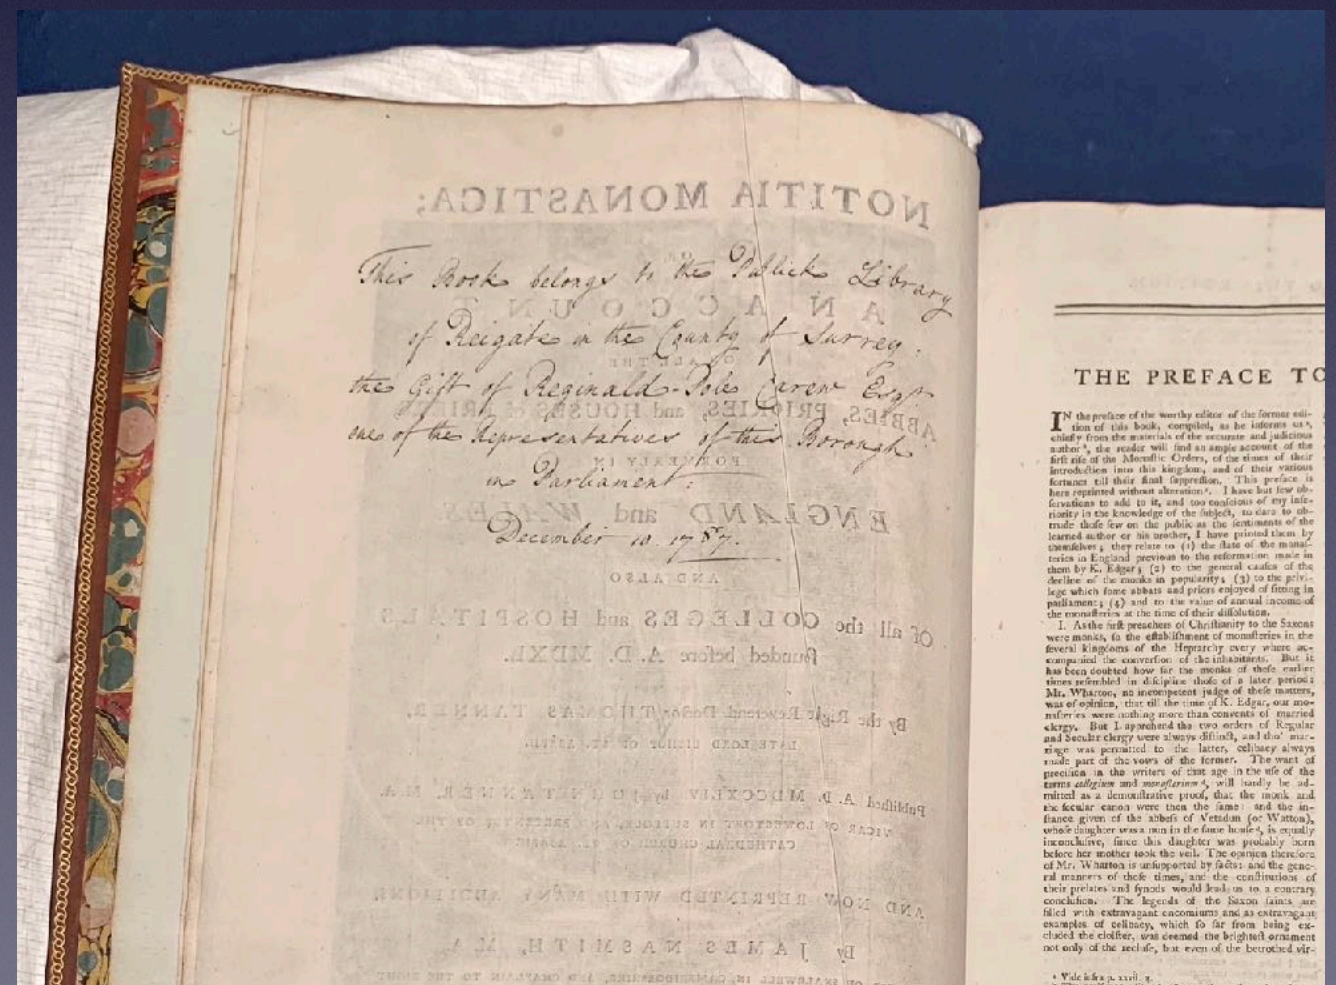 NOTITIA MONASTICA;
This Book belongs to the Publick Library
of Reigate in the County of Surrey.
the Gift of Reginald-Pole Carew Esqr
one of the Representatives of this Borough
in Parliament:
December 10. 1787.
AN ACCOUNT
OF ALL THE
ABBIES, PRIORIES, and HOUSES of FRIERS,
FORMERLY IN
ENGLAND and WALES
AND ALSO
Of all the COLLEGES and HOSPITALS
founded before A. D. MDXL.
By the Right Reverend Doctor THOMAS TANNER,
LATE LORD BISHOP OF ST. ASAPH.
Published A. D. MDCCXLIV. by JOHN TANNER, M. A.
VICAR OF LOWESTOFT IN SUFFOLK, AND PRECENTOR OF THE
CATHEDRAL CHURCH OF ST. ASAPH
AND NOW REPRINTED WITH MANY ADDITIONS
By JAMES NASMITH, M. A.
SNAILWELL IN CAMBRIDGESHIRE, AND CHAPLAIN TO THE RIGHT
THE PREFACE TO
IN the preface of the worthy editor of the former edi-
tion of this book, compiled, as he informs us,
chiefly from the materials of the accurate and judicious
author, the reader will find an ample account of the
first rise of the Monastic Orders, of the times of their
introduction into this kingdom, and of their various
fortunes till their final suppression. This preface is
here reprinted without alteration. I have but few ob-
servations to add to it, and too conscious of my infe-
riority in the knowledge of the subject, to dare to ob-
trude those few on the public as the sentiments of the
learned author or his brother, I have printed them by
themselves; they relate to (1) the state of the monas-
teries in England previous to the reformation made in
them by K. Edgar; (2) to the general causes of the
decline of the monks in popularity; (3) to the privi-
lege which some abbats and priors enjoyed of sitting in
parliament; (4) and to the value of annual income of
the monasteries at the time of their dissolution.
I. As the first preachers of Christianity to the Saxons
were monks, so the establishment of monasteries in the
several kingdoms of the Heptarchy every where ac-
companied the conversion of the inhabitants. But it
has been doubted how far the monks of these earlier
times resembled in discipline those of a later period:
Mr. Wharton, no incompetent judge of these matters,
was of opinion, that till the time of K. Edgar, our mo-
nasteries were nothing more than convents of married
clergy. But I apprehend the two orders of Regular
and Secular clergy were always distinct, and tho' mar-
riage was permitted to the latter, celibacy always
made part of the vows of the former. The want of
precision in the writers of that age in the use of the
terms collegium and monasterium, will hardly be ad-
mitted as a demonstrative proof, that the monk and
the secular canon were then the same: and the in-
stance given of the abbess of Vetadun (or Watton),
whose daughter was a nun in the same house, is equally
inconclusive, since this daughter was probably born
before her mother took the veil. The opinion therefore
of Mr. Wharton is unsupported by facts: and the gene-
ral manners of those times, and the constitutions of
their prelates and synods would lead us to a contrary
conclusion. The legends of the Saxon saints are
filled with extravagant encomiums and as extravagant
examples of celibacy, which so far from being ex-
cluded the cloister, was deemed the brightest ornament
not only of the recluse, but even of the betrothed vir-
Vide infra p. xxvii.